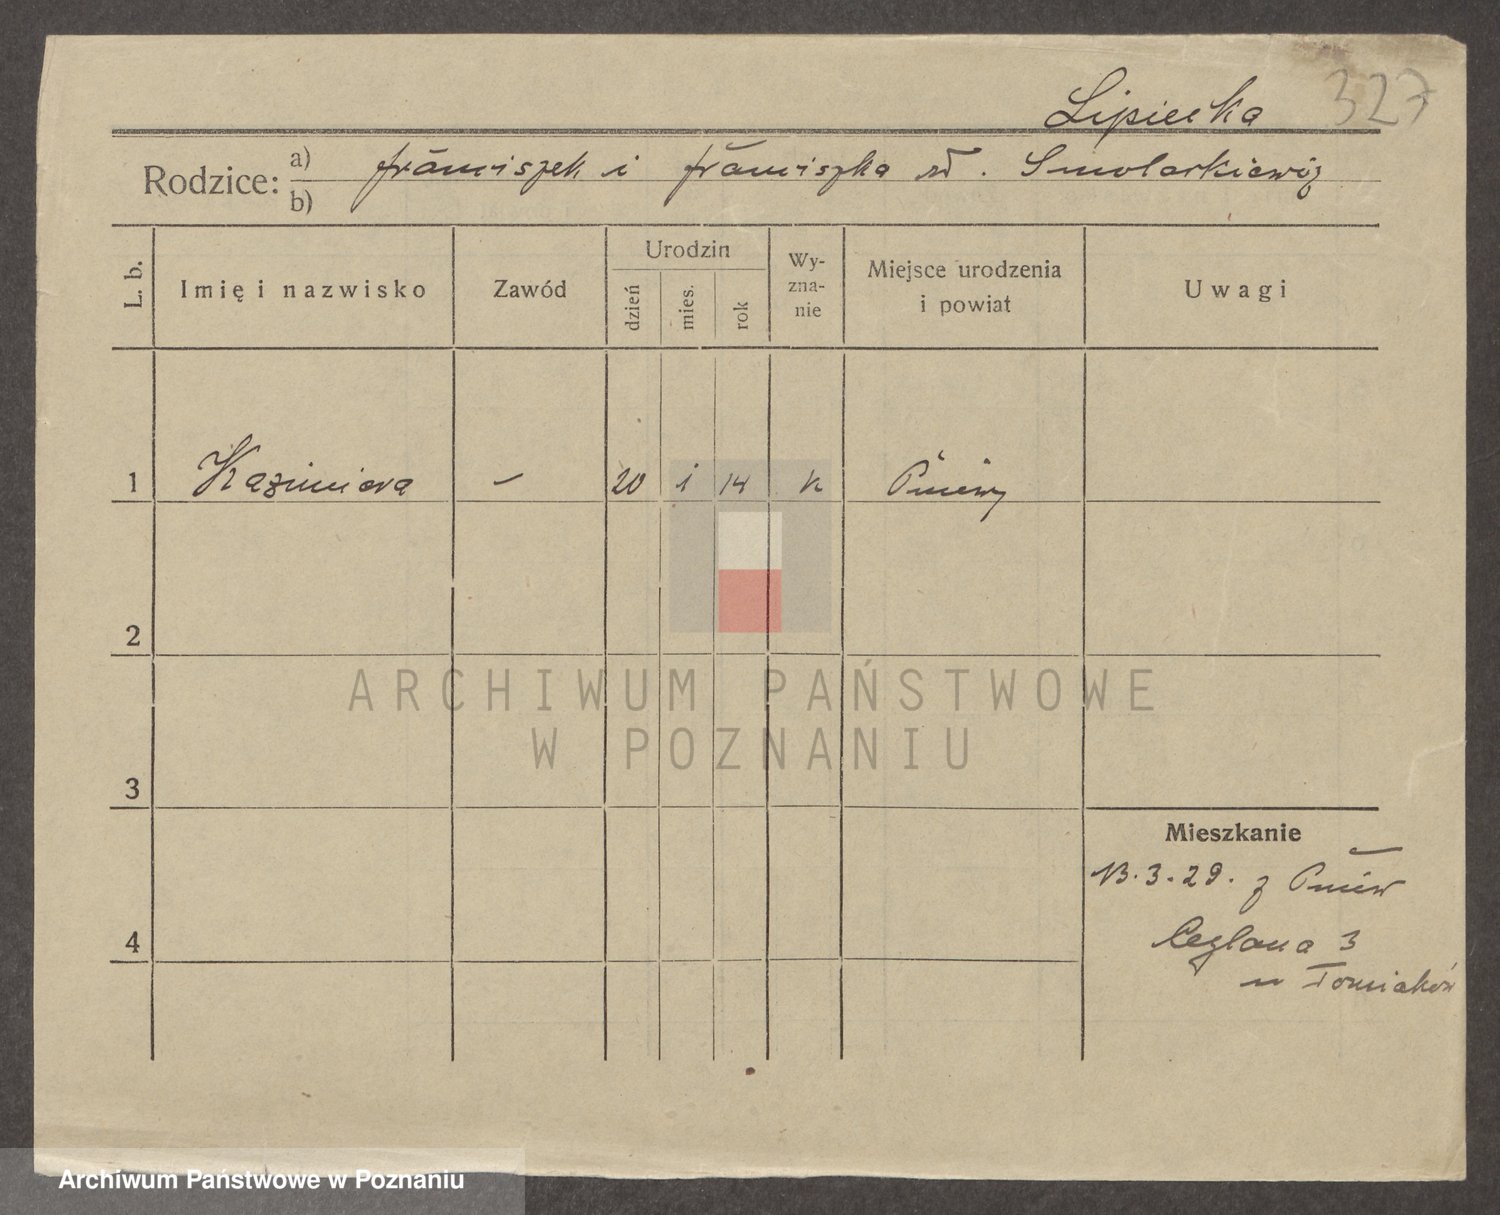 327
Lipiecka
Rodzice: a) b) Franciszek i Franciszka Smolarkiewicz
L. b.
Imię i nazwisko
Zawód
Urodzin
dzień
mies.
rok
Wy-
zna-
nie
Miejsce urodzenia
i powiat
Uwagi
1 Kazimiera – 20 1 14 k Pniewy
2
3
4
Mieszkanie
13.3.29. z Pniew
Ceglana 3
u Tomiaków
ARCHIWUM PAŃSTWOWE
W POZNANIU
Archiwum Państwowe w Poznaniu